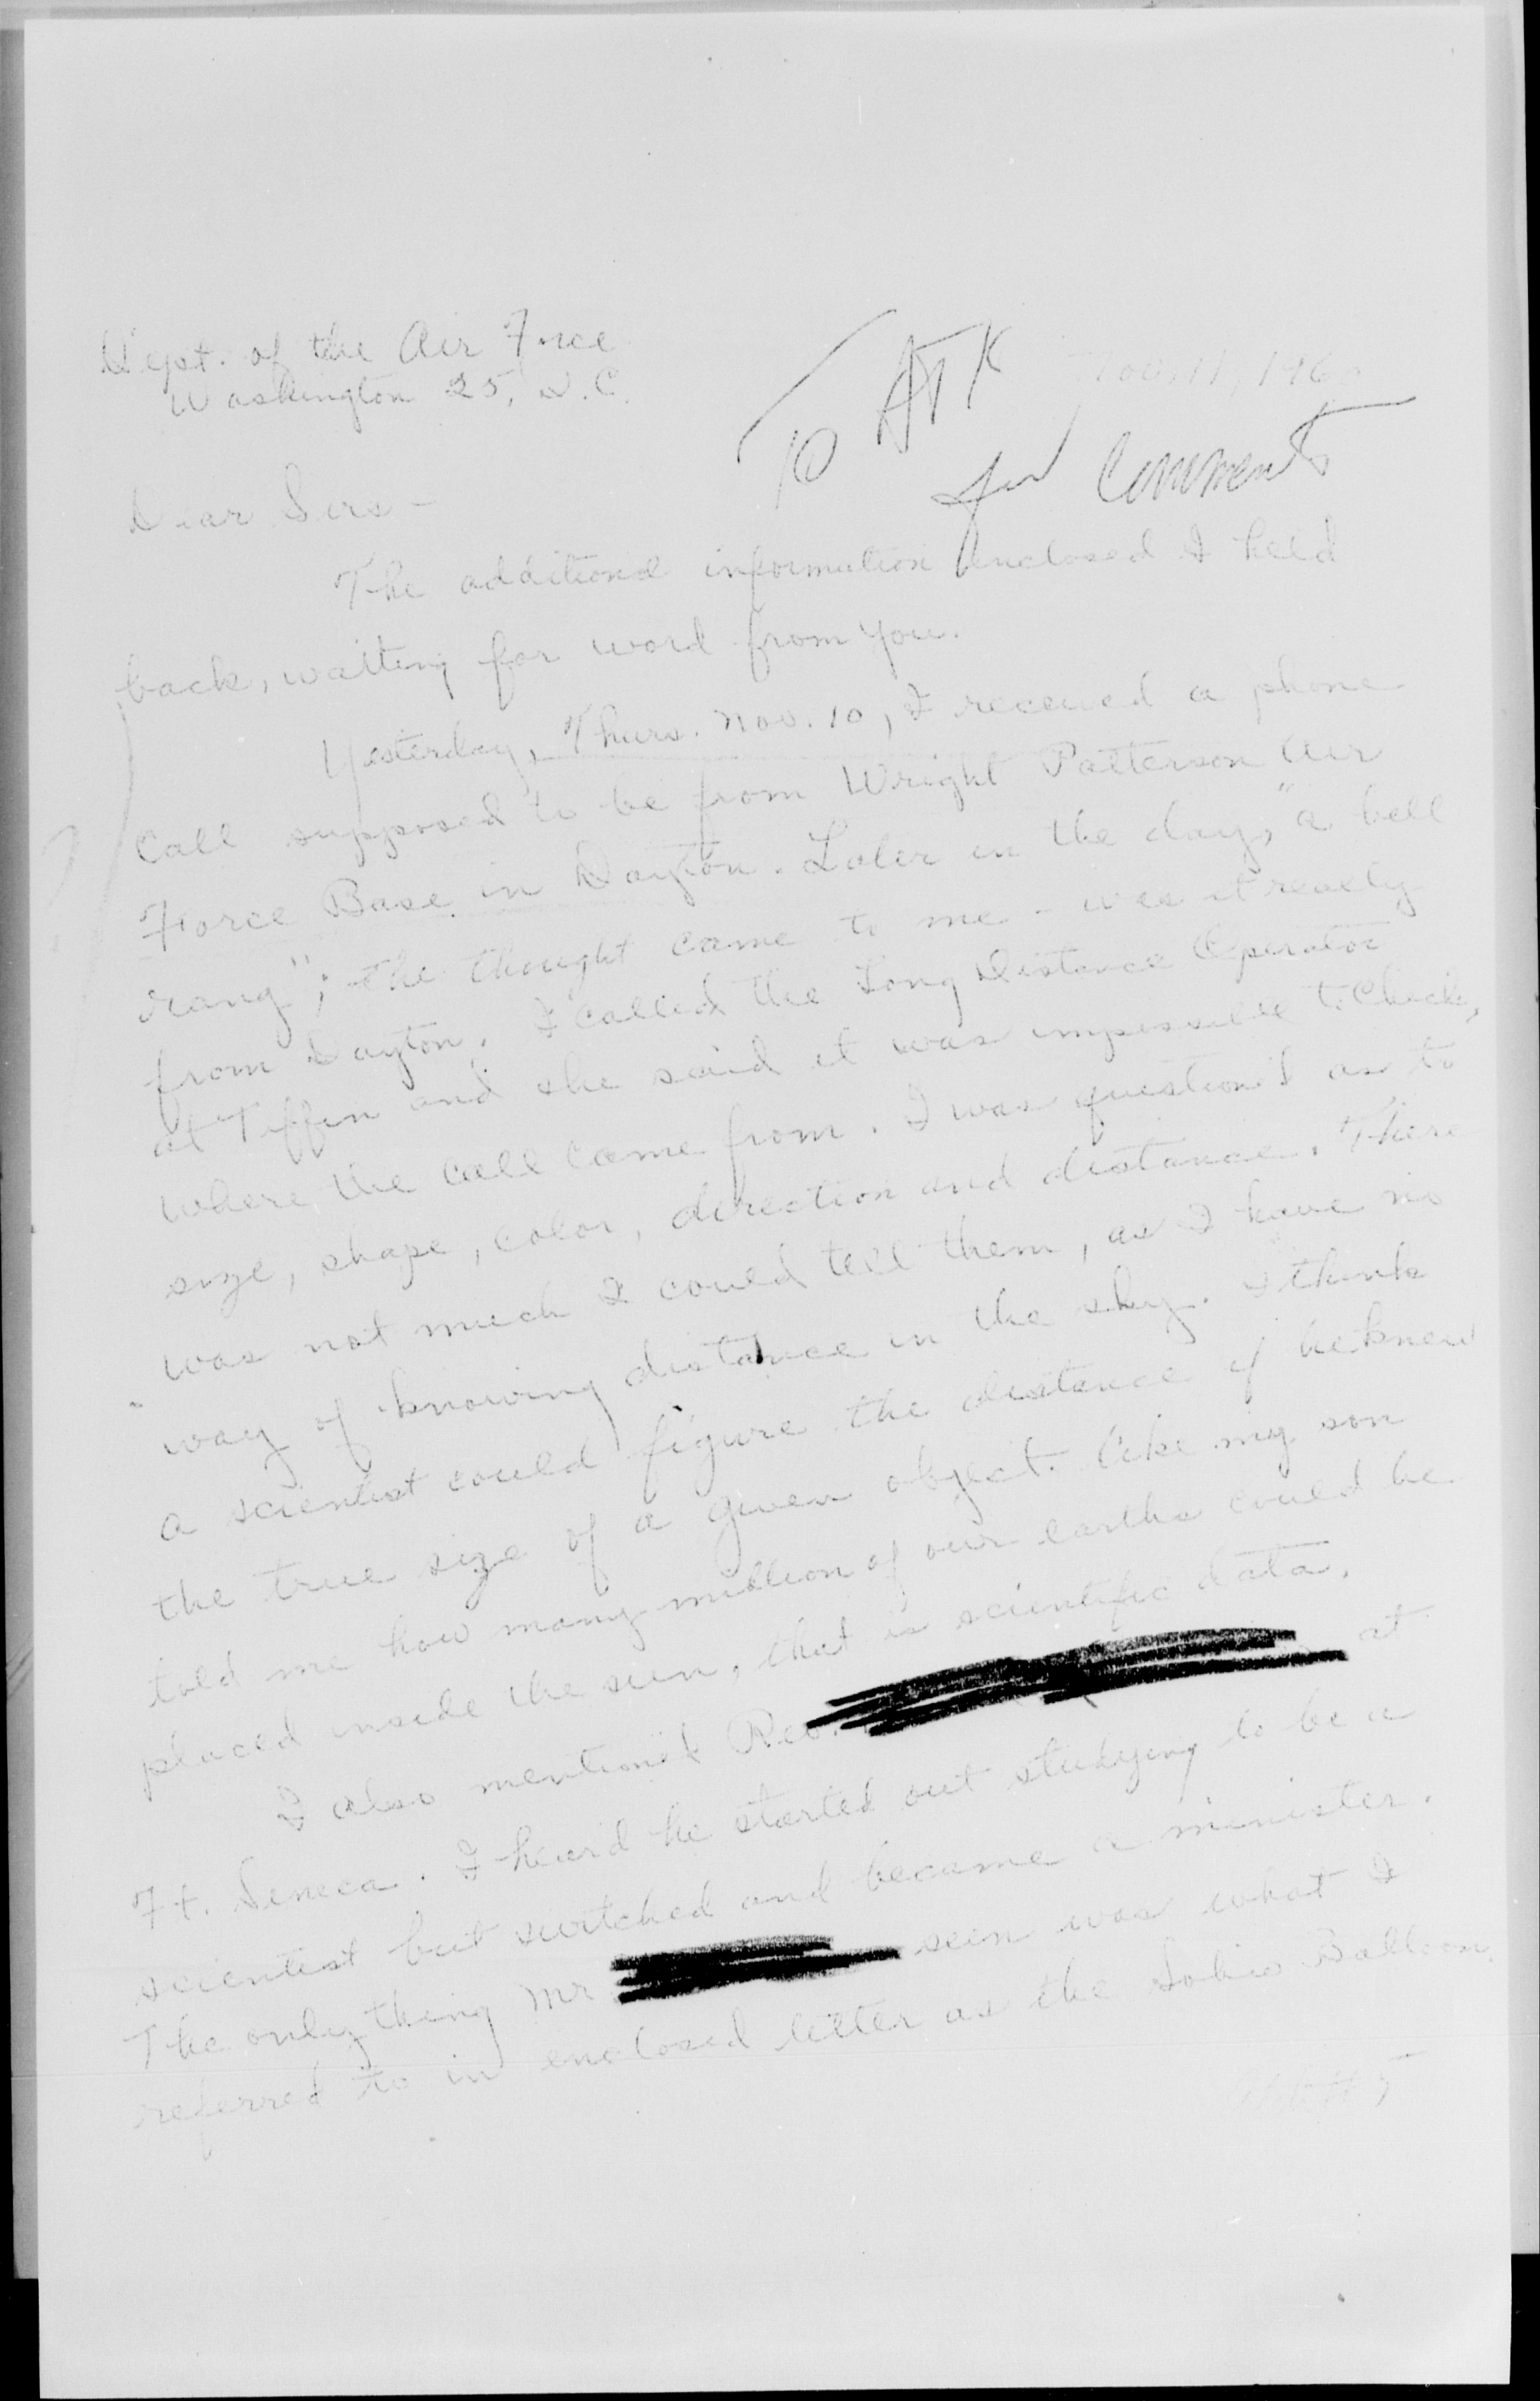 Dept. of the Air Force
Washington 25, D.C.
Nov. 11, 1960
To
for Comments
Dear Sirs -
The additional information enclosed I held
back, waiting for word from you.
Yesterday, Thurs. Nov. 10, I received a phone
call supposed to be from Wright Patterson Air
Force Base in Dayton. Later in the day, "a bell
rang"; the thought came to me - was it really
from Dayton. I called the Long Distance Operator
at Tiffin and she said it was impossible to check,
where the call came from. I was question'd as to
size, shape, color, direction and distance. There
was not much I could tell them, as I have no
way of knowing distance in the sky. I think
a scientist could figure the distance if he knew
the true size of a given object. like my son
told me how many million of our earths could be
placed inside the sun, that is scientific data.
I also mention'd Rev. at
Ft. Seneca. I heard he started out studying to be a
scientist but switched and became a minister.
The only thing Mr seen was what I
referred to in enclosed letter as the Balloon.